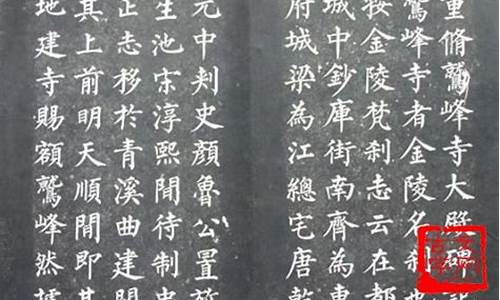 重脩鷲峰寺大殿碑
鷲峰寺者金陵名刹也
按金陵梵刹志云在都
城中鈔庫街南齊為東
府城梁為江總宅唐乾
元中刺史顏魯公置放
生池宋淳熙閒待制史
正志移於青溪曲建閣
其上前明天順閒即其
地建寺賜額鷲峰然